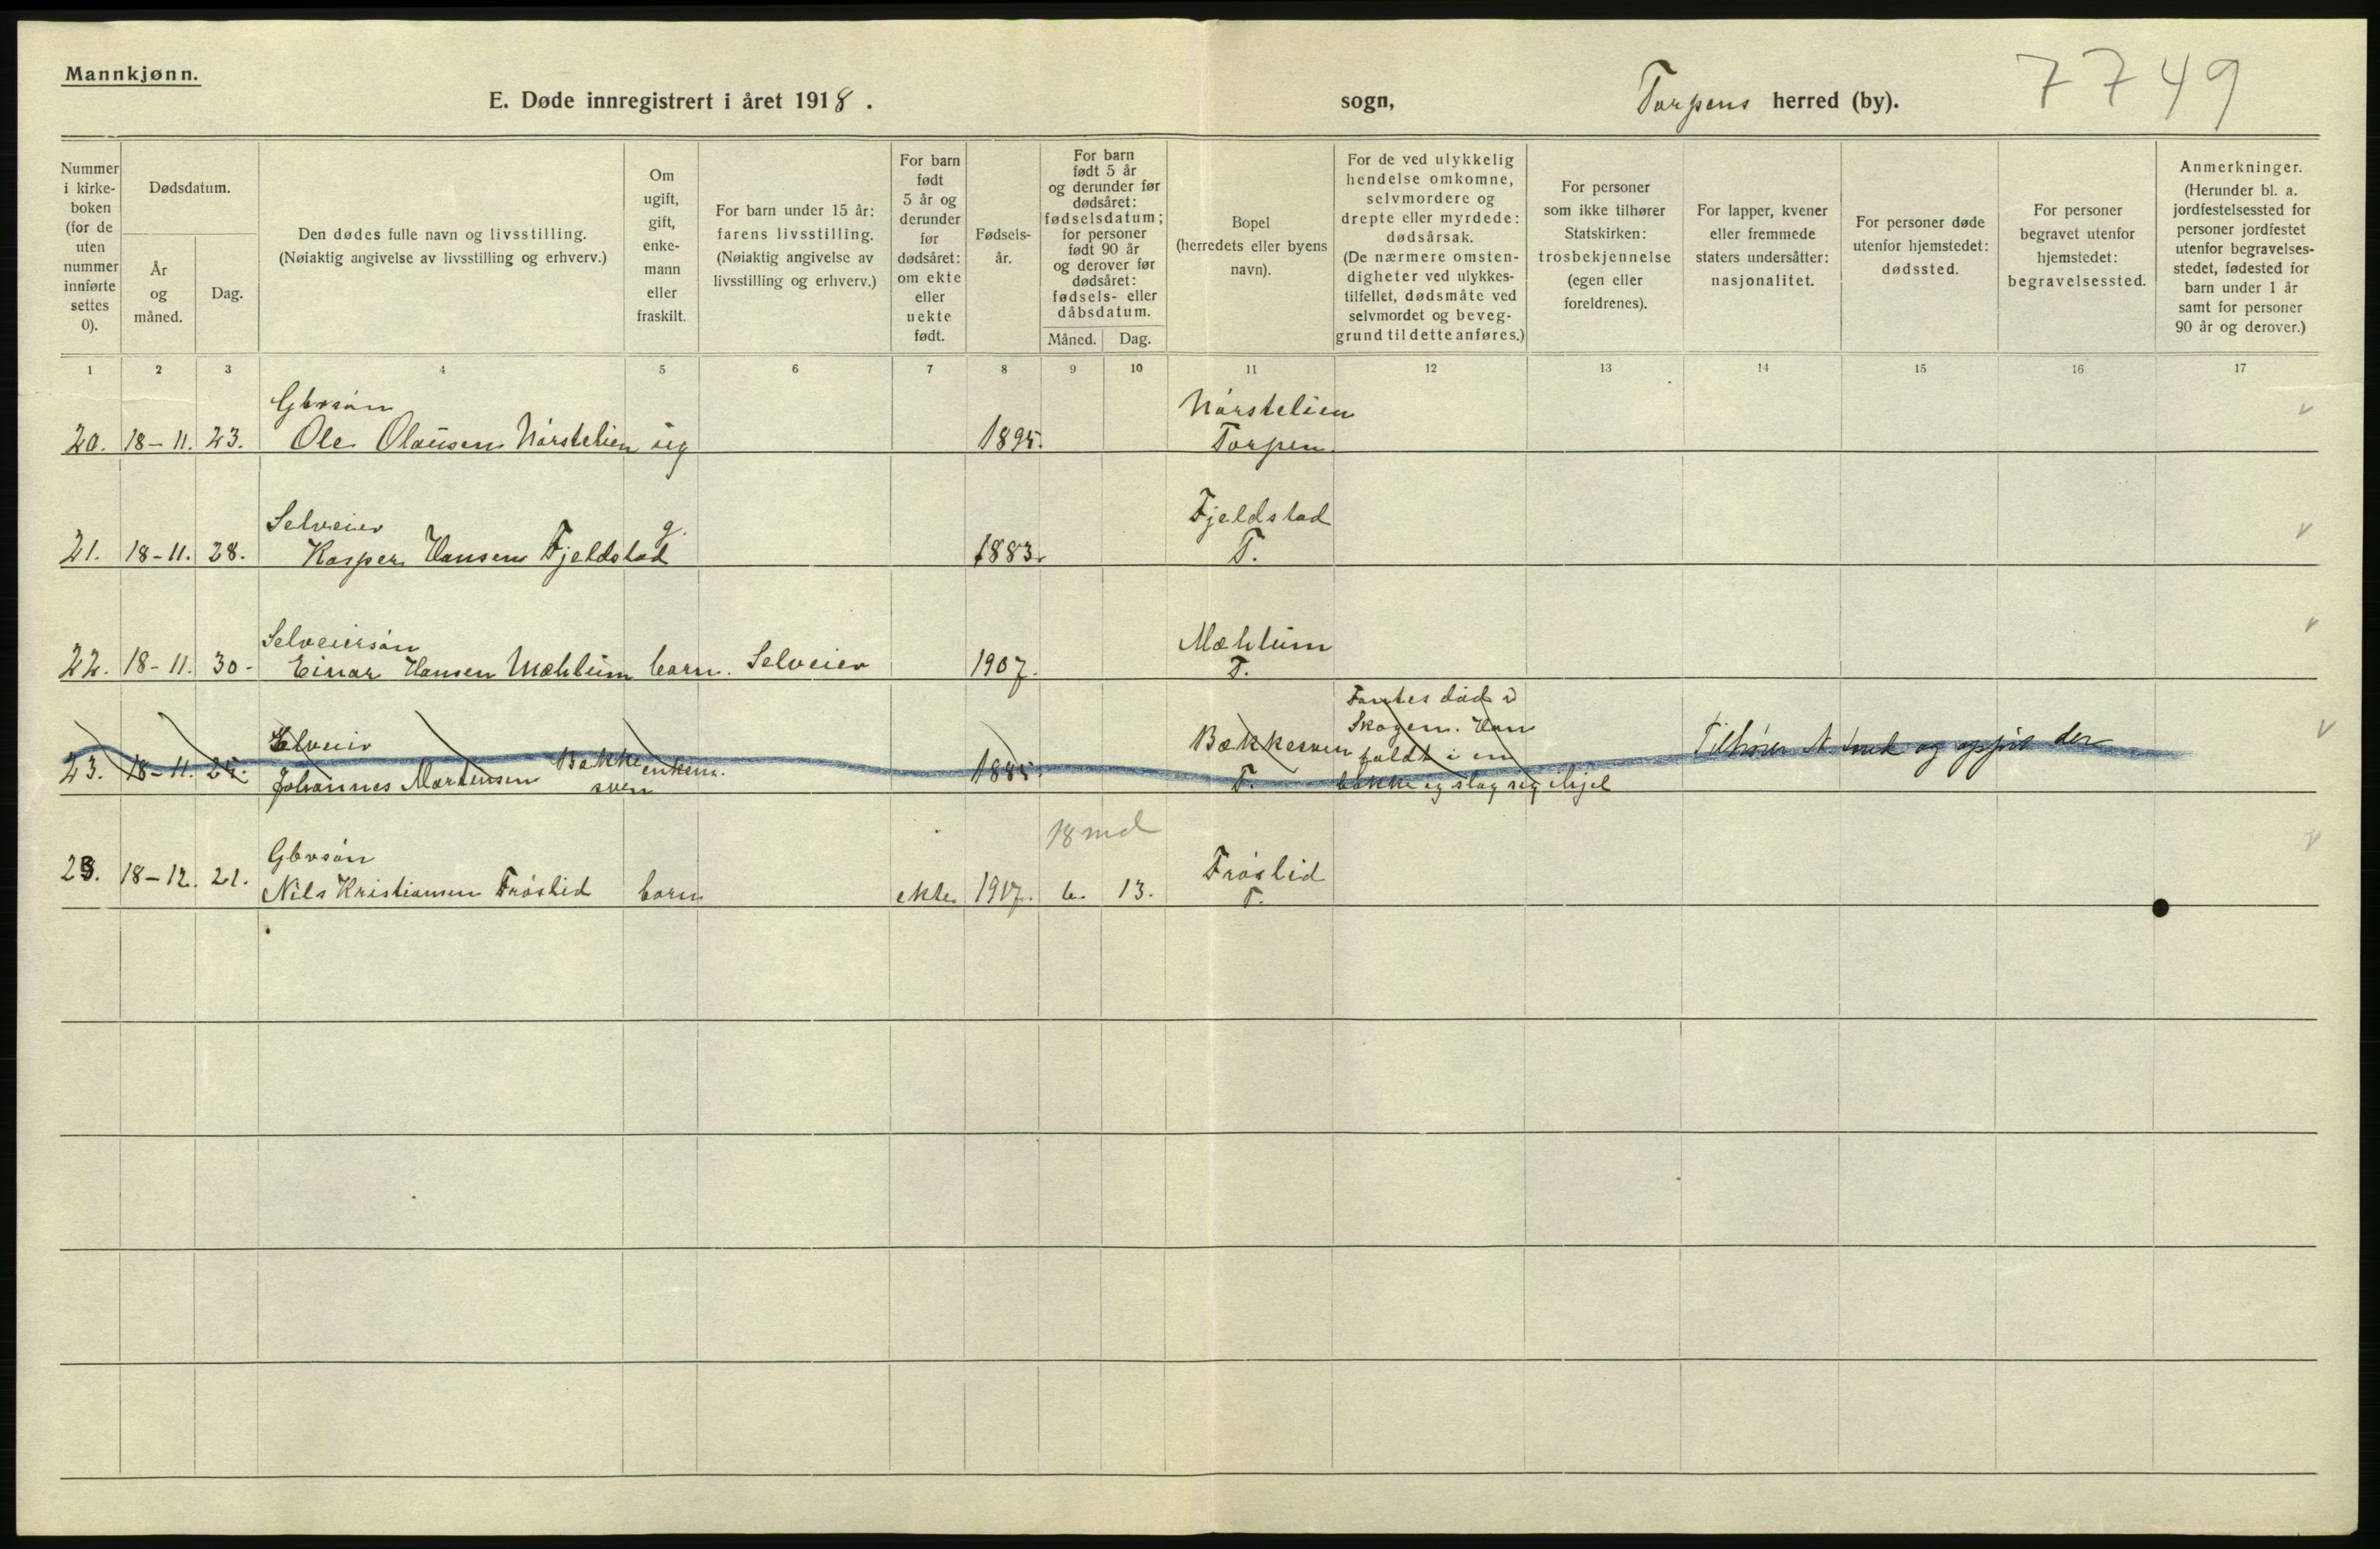 Mannkjønn.
E. Døde innregistrert i året 1918.
sogn,
Torpens herred (by).
7749
Nummer i kirke-boken (for de uten nummer innførte settes 0).
Dødsdatum.
År og måned.
Dag.
Den dødes fulle navn og livsstilling.
(Nøiaktig angivelse av livsstilling og erhverv.)
Om ugift, gift, enke-mann eller fraskilt.
For barn under 15 år: farens livsstilling.
(Nøiaktig angivelse av livsstilling og erhverv.)
For barn født 5 år og derunder før dødsåret: om ekte eller uekte født.
Fødsels-år.
For barn født 5 år og derunder før dødsåret: fødselsdatum; for personer født 90 år og derover før dødsåret: fødsels- eller dåbsdatum.
Måned. Dag.
Bopel (herredets eller byens navn).
For de ved ulykkelig hendelse omkomne, selvmordere og drepte eller myrdede: dødsårsak.
(De nærmere omsten-digheter ved ulykkes-tilfellet, dødsmåte ved selvmordet og beveg-grund til dette anføres.)
For personer som ikke tilhører Statskirken: trosbekjennelse (egen eller foreldrenes).
For lapper, kvener eller fremmede staters undersåtter: nasjonalitet.
For personer døde utenfor hjemstedet: dødssted.
For personer begravet utenfor hjemstedet: begravelsessted.
Anmerkninger.
(Herunder bl. a. jordfestelsessted for personer jordfestet utenfor begravelses-stedet, fødested for barn under 1 år samt for personer 90 år og derover.)
1 2 3 4 5 6 7 8 9 10 11 12 13 14 15 16 17
Gbrsøn Nørstelien
20. 18-11. 23. Ole Olausen Nørstelien ug 1895. Torpen
Selveier g. Fjeldstad
21. 18-11. 28. Kasper Hansen Fjeldstad 1883. T.
Selveiersøn Mæhlum
22. 18-11. 30. Einar Hansen Mæhlum barn. Selveier 1907. T.
Fantes død i
Skogen. Han
Selveier Bakke Bækkesven faldt i en Tilhører N. Land og opført der
23. 18-11. 25. Johannes Martensen sven enkem. 1885. T. bakke og slog sig ihjel
18 md
Gbrsøn Frøslid
23. 18-12. 21. Nils Kristiansen Frøslid barn ekte 1917. 6. 13. T.